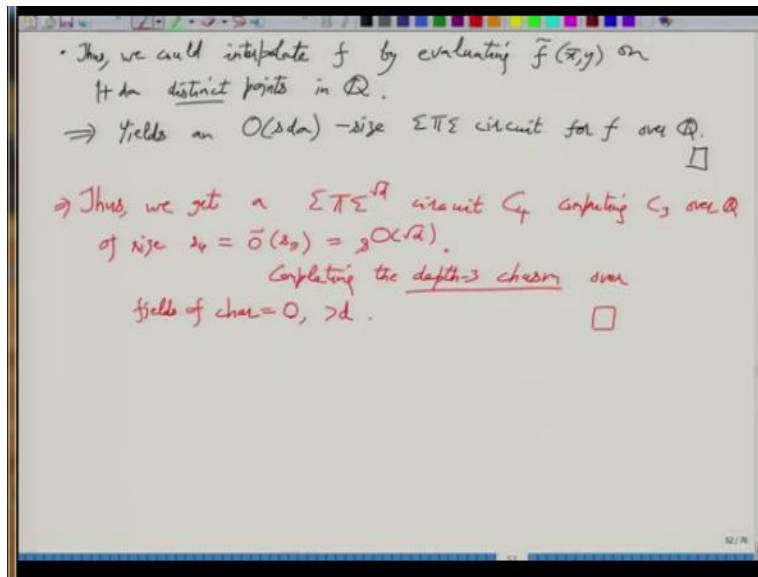 • Thus, we could interpolate f by evaluating f̃(x̄,y) on
1+da distinct points in ℚ.
⇒ Yields an O(sda)-size ΣΠΣ circuit for f over ℚ.
⇒ Thus, we get a ΣΠΣ^√d circuit C₄ computing C₃ over ℚ
of size s₄ = Õ(s₃) = s^O(√d).
Completing the depth-3 chasm over
fields of char=0, >d.
52/76
53